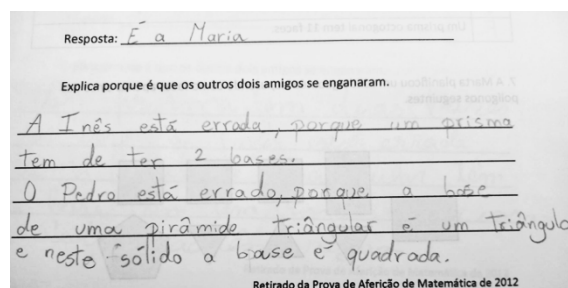 Resposta: É a Maria
Explica porque é que os outros dois amigos se enganaram.
A Inês está errada, porque um prisma
tem de ter 2 bases.
O Pedro está errado, porque a base
de uma pirâmide triângular é um triângulo
e neste sólido a base é quadrada.
Retirado da Prova de Aferição de Matemática de 2012